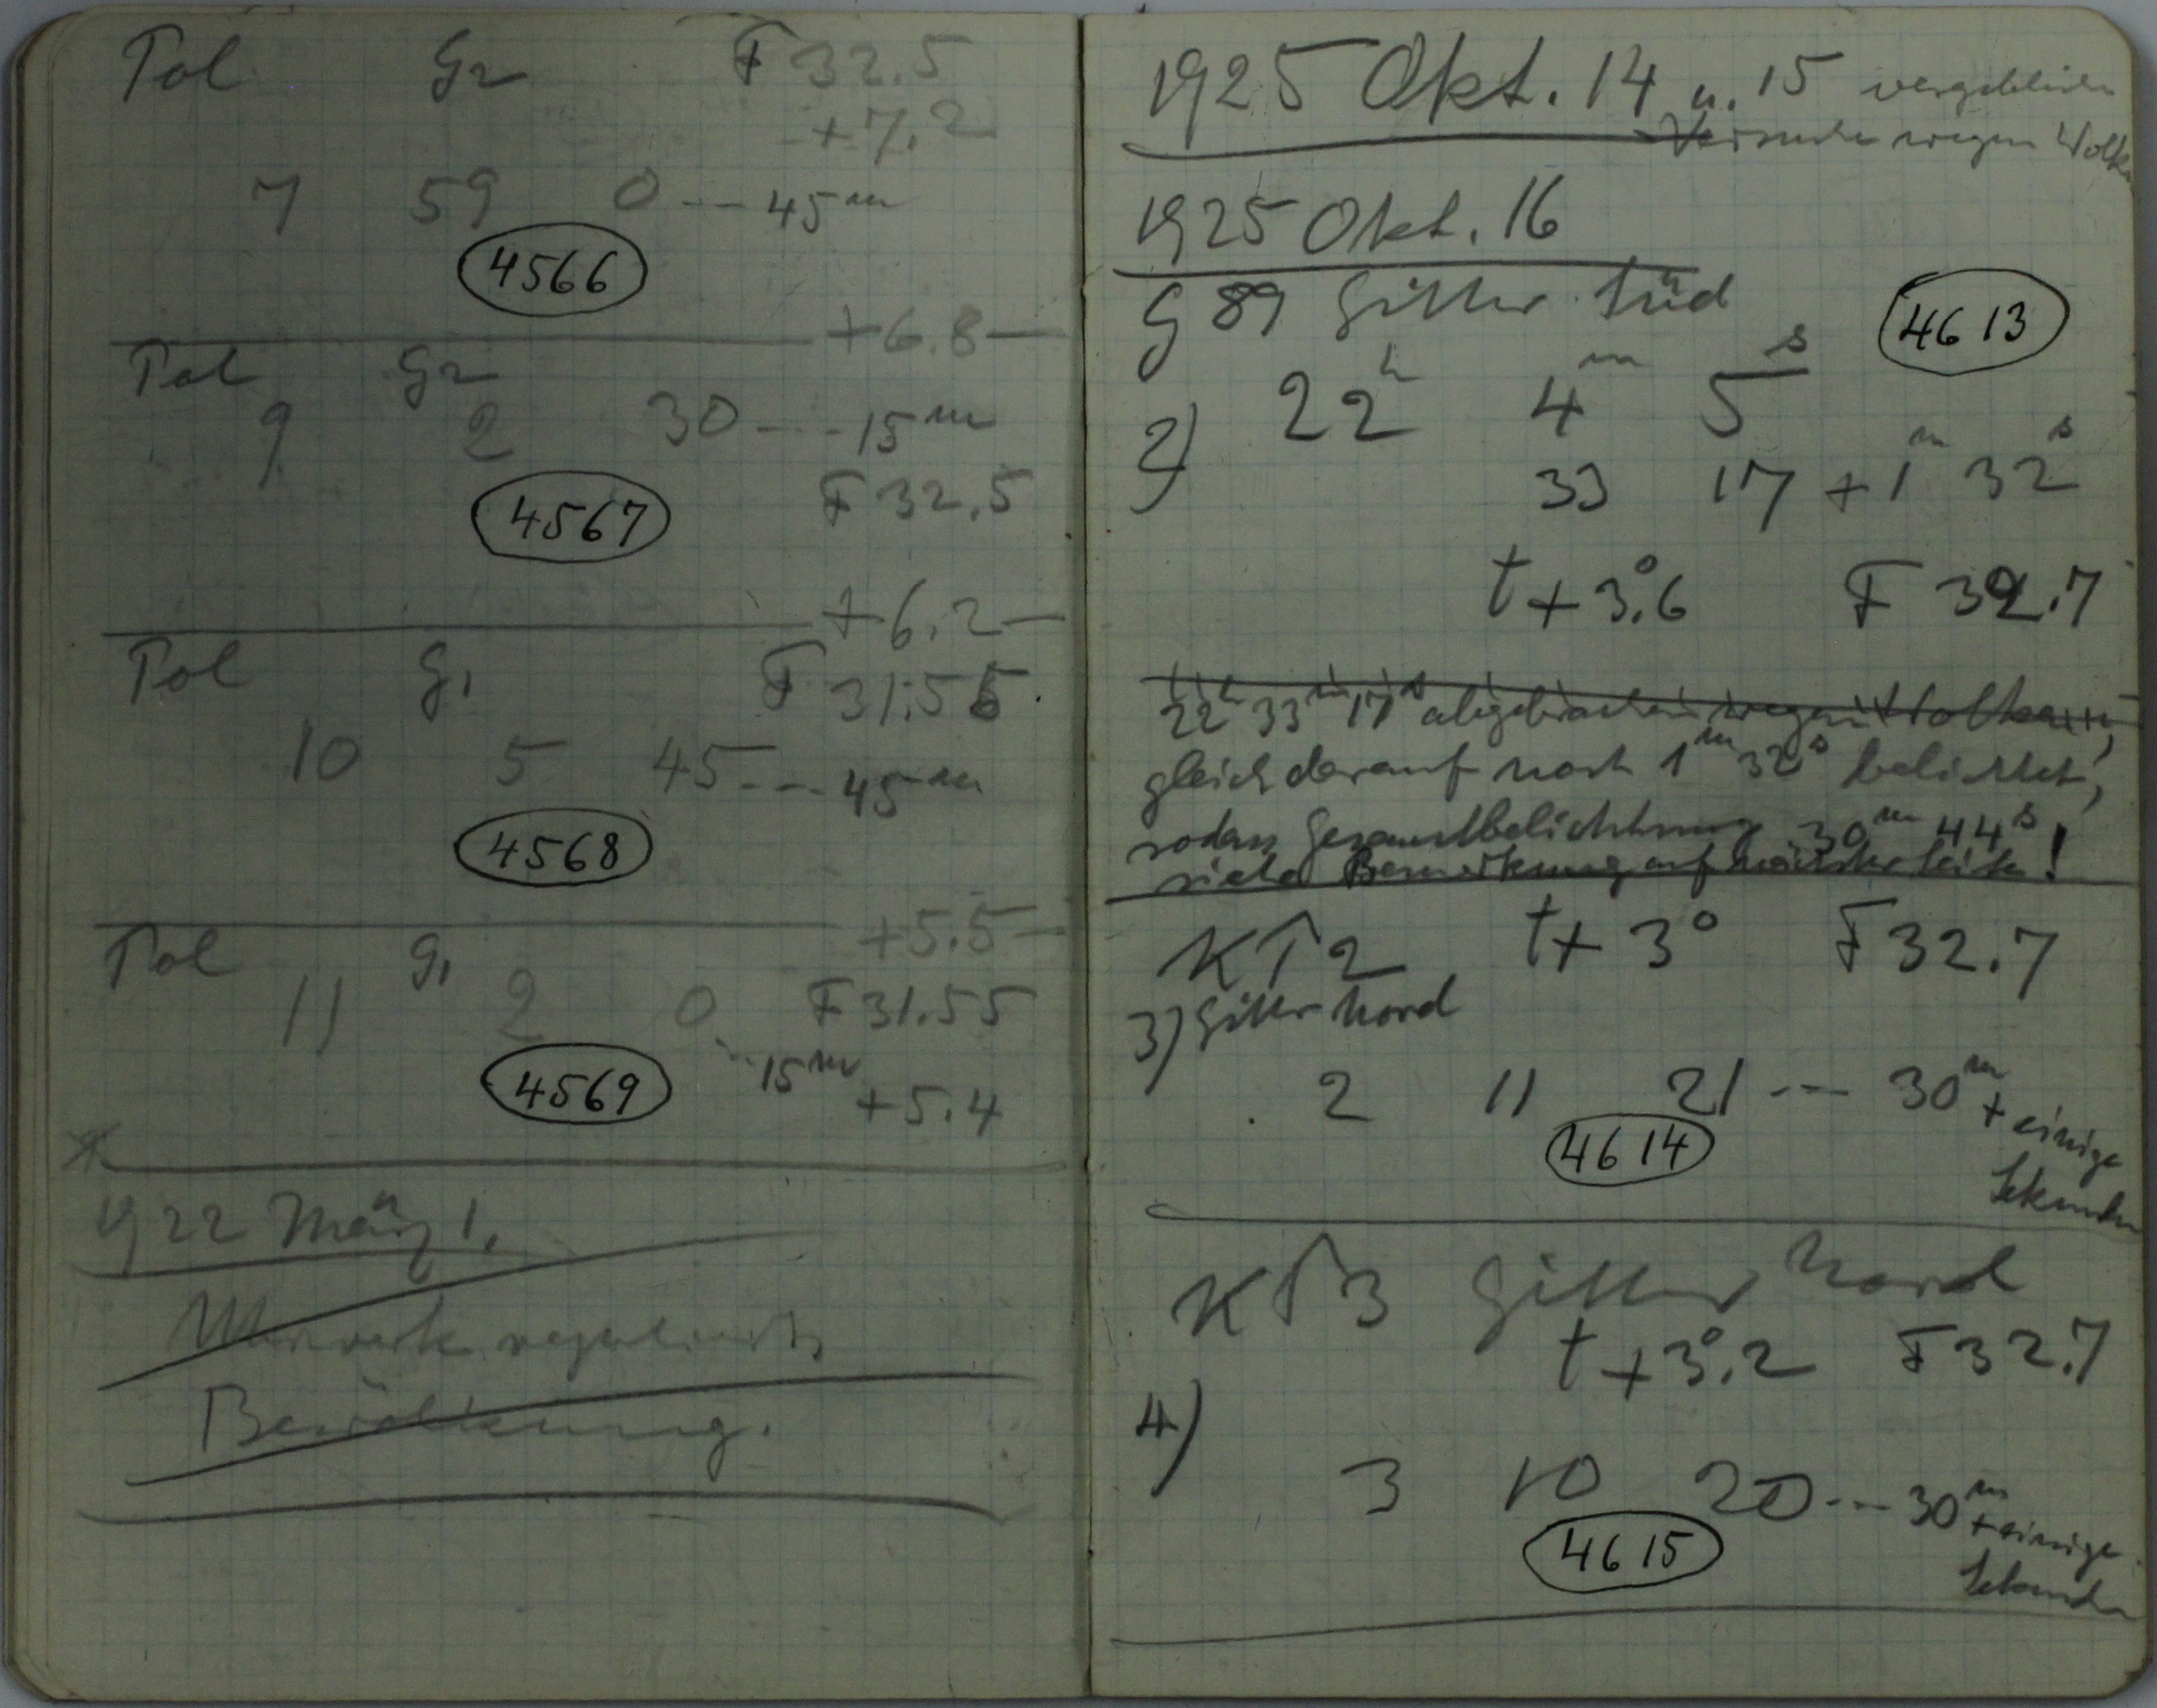 Pol G2 F 32.5
+7.2
7 59 0 --- 45m
4566
+6.8
Pol G2
9 2 30 --- 15m
4567 F 32.5
+6.2
Pol G1 F 31.55
10 5 45 --- 45m
4568
+5.5
Pol G1
11 2 0 F 31.55
4569 --- 15m
+5.4
1922 März 1.
Uhrwerk reguliert
Bewölkung.
1925 Okt. 14 u. 15 vergebliche
Versuche wegen Wolken
1925 Okt. 16
G 89 Gitter Süd 4613
22h 4m 5s
2)
33 17 + 1m 32s
t + 3°.6 F 32.7
22h 33m 17s abgebrochen wegen Wolken,
gleich darauf noch 1m 32s belichtet,
sodass Gesamtbelichtung 30m 44s!
siehe Bemerkung auf nächster Seite!
KT2 t + 3° F 32.7
3) Gitter Nord
2 11 21 --- 30m
+ einige
Sekunden
4614
KT3 Gitter Nord
t + 3°.2 F 32.7
4)
3 10 20 --- 30m
+ einige
Sekunden
4615